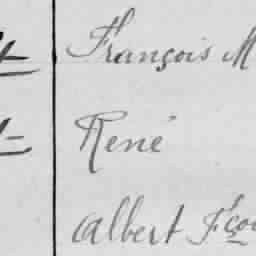 François M
René
Albert Fçoi